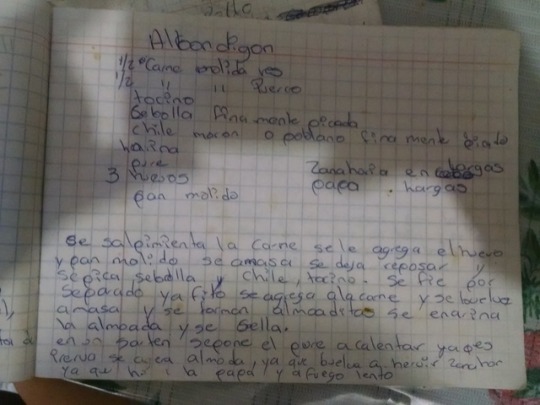 Albondigon
1/2 Carne molida res
1/2 " " Puerco
tocino
Sebolla fina mente picada
chile moron o poblano fina mente picado
harina
pure
Zanahaia en hargas
3 huevos
papa . hargas
pan molido
se salpimienta la carne se le agrega el huevo
y pan molido se amasa se deja reposar y
se pica sebolla y chile, tocino. Se fie por
separado ya fito se agrega a la carne y se buelve
amasa y se forman almoaditas se enarina
la almoada y se sella.
en un sarten se pone el pure a calentar ya q es
ierva se a almoada, ya que buelva a hervir zanahor
ya que la papa y a fuego lento